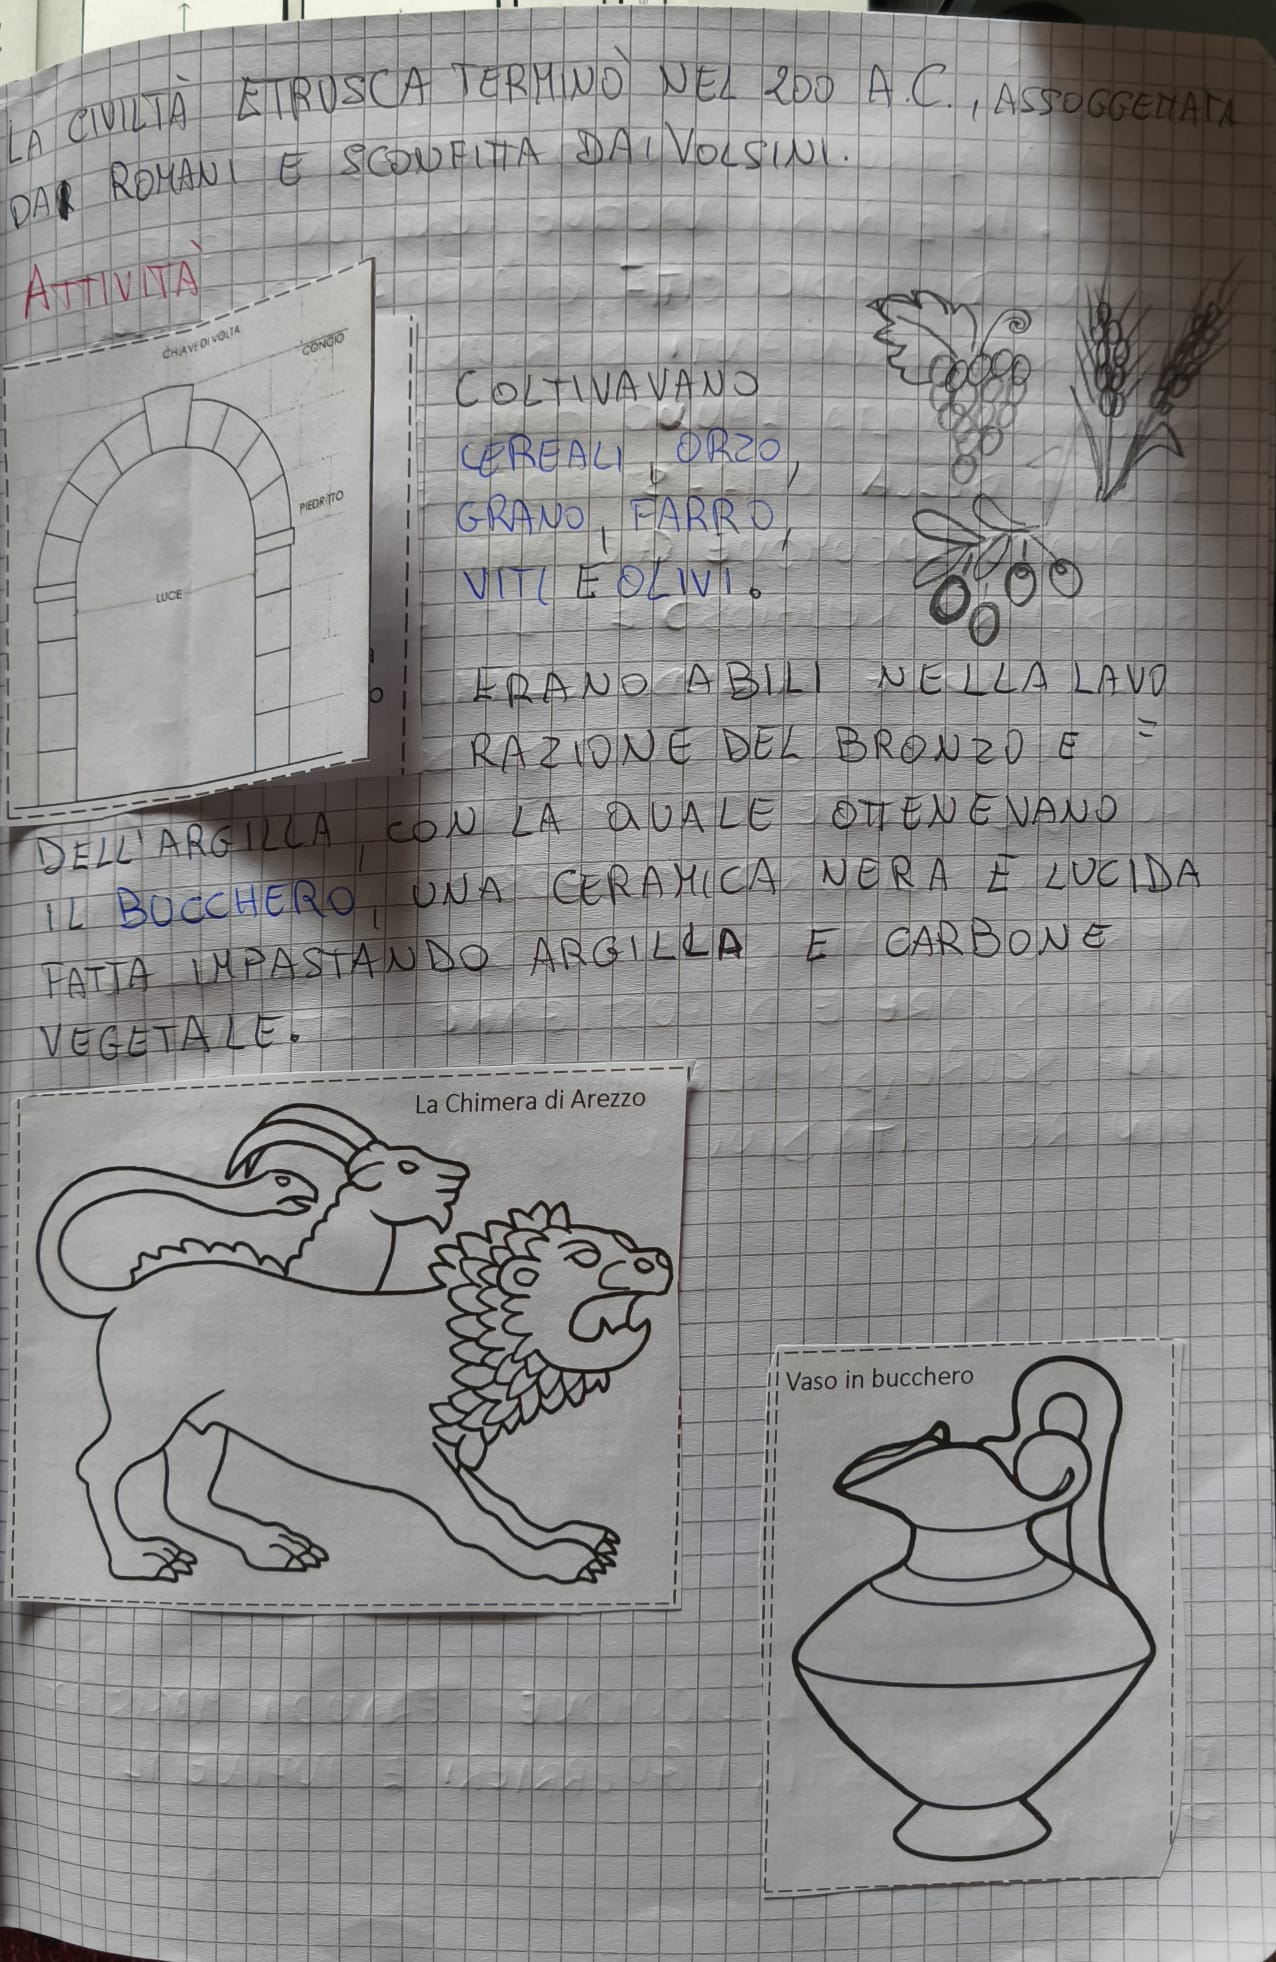 LA CIVILTÀ ETRUSCA TERMINÒ NEL 200 A.C., ASSOGGETTATA
DAI ROMANI E SCONFITTA DAI VOLSINI.
ATTIVITÀ
CHIAVE DI VOLTA
CONCIO
PIEDRITTO
LUCE
COLTIVAVANO
CEREALI, ORZO,
GRANO, FARRO,
VITI E OLIVI.
ERANO ABILI NELLA LAVO
RAZIONE DEL BRONZO E =
DELL'ARGILLA, CON LA QUALE OTTENEVANO
IL BUCCHERO, UNA CERAMICA NERA E LUCIDA
FATTA IMPASTANDO ARGILLA E CARBONE
VEGETALE.
La Chimera di Arezzo
Vaso in bucchero